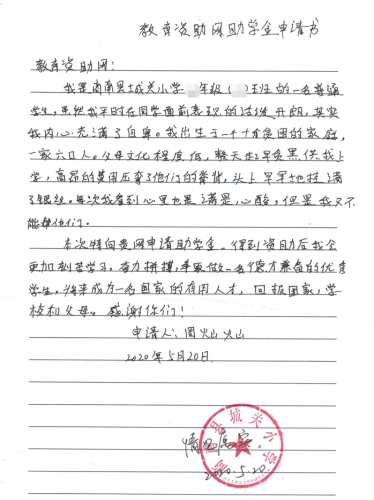 教育资助网助学金申请书
教育资助网:
我是商南县城关小学 年级( )班的一名普通
学生,虽然我平时在同学面前表现的活泼开朗,其实
我内心充满了自卑。我出生于一个十分贫困的家庭,
一家六口人。父母文化程度低,整天起早贪黑供我上
学,高昂的费用压弯了他们的脊背,头上早早地挂满
了银丝。每次我看到心里也是满是心酸,但是我又不
能帮他们。
本次特向贵网申请助学金。得到资助后我会
更加刻苦学习,奋力拼搏,争取做一名德才兼备的优秀
学生,将来成为一名国家的有用人才,回报国家,学
校和父母。感谢你们!
申请人:周灿灿
2020年5月20日.
情况属实.
县城关小学
2020.5.20